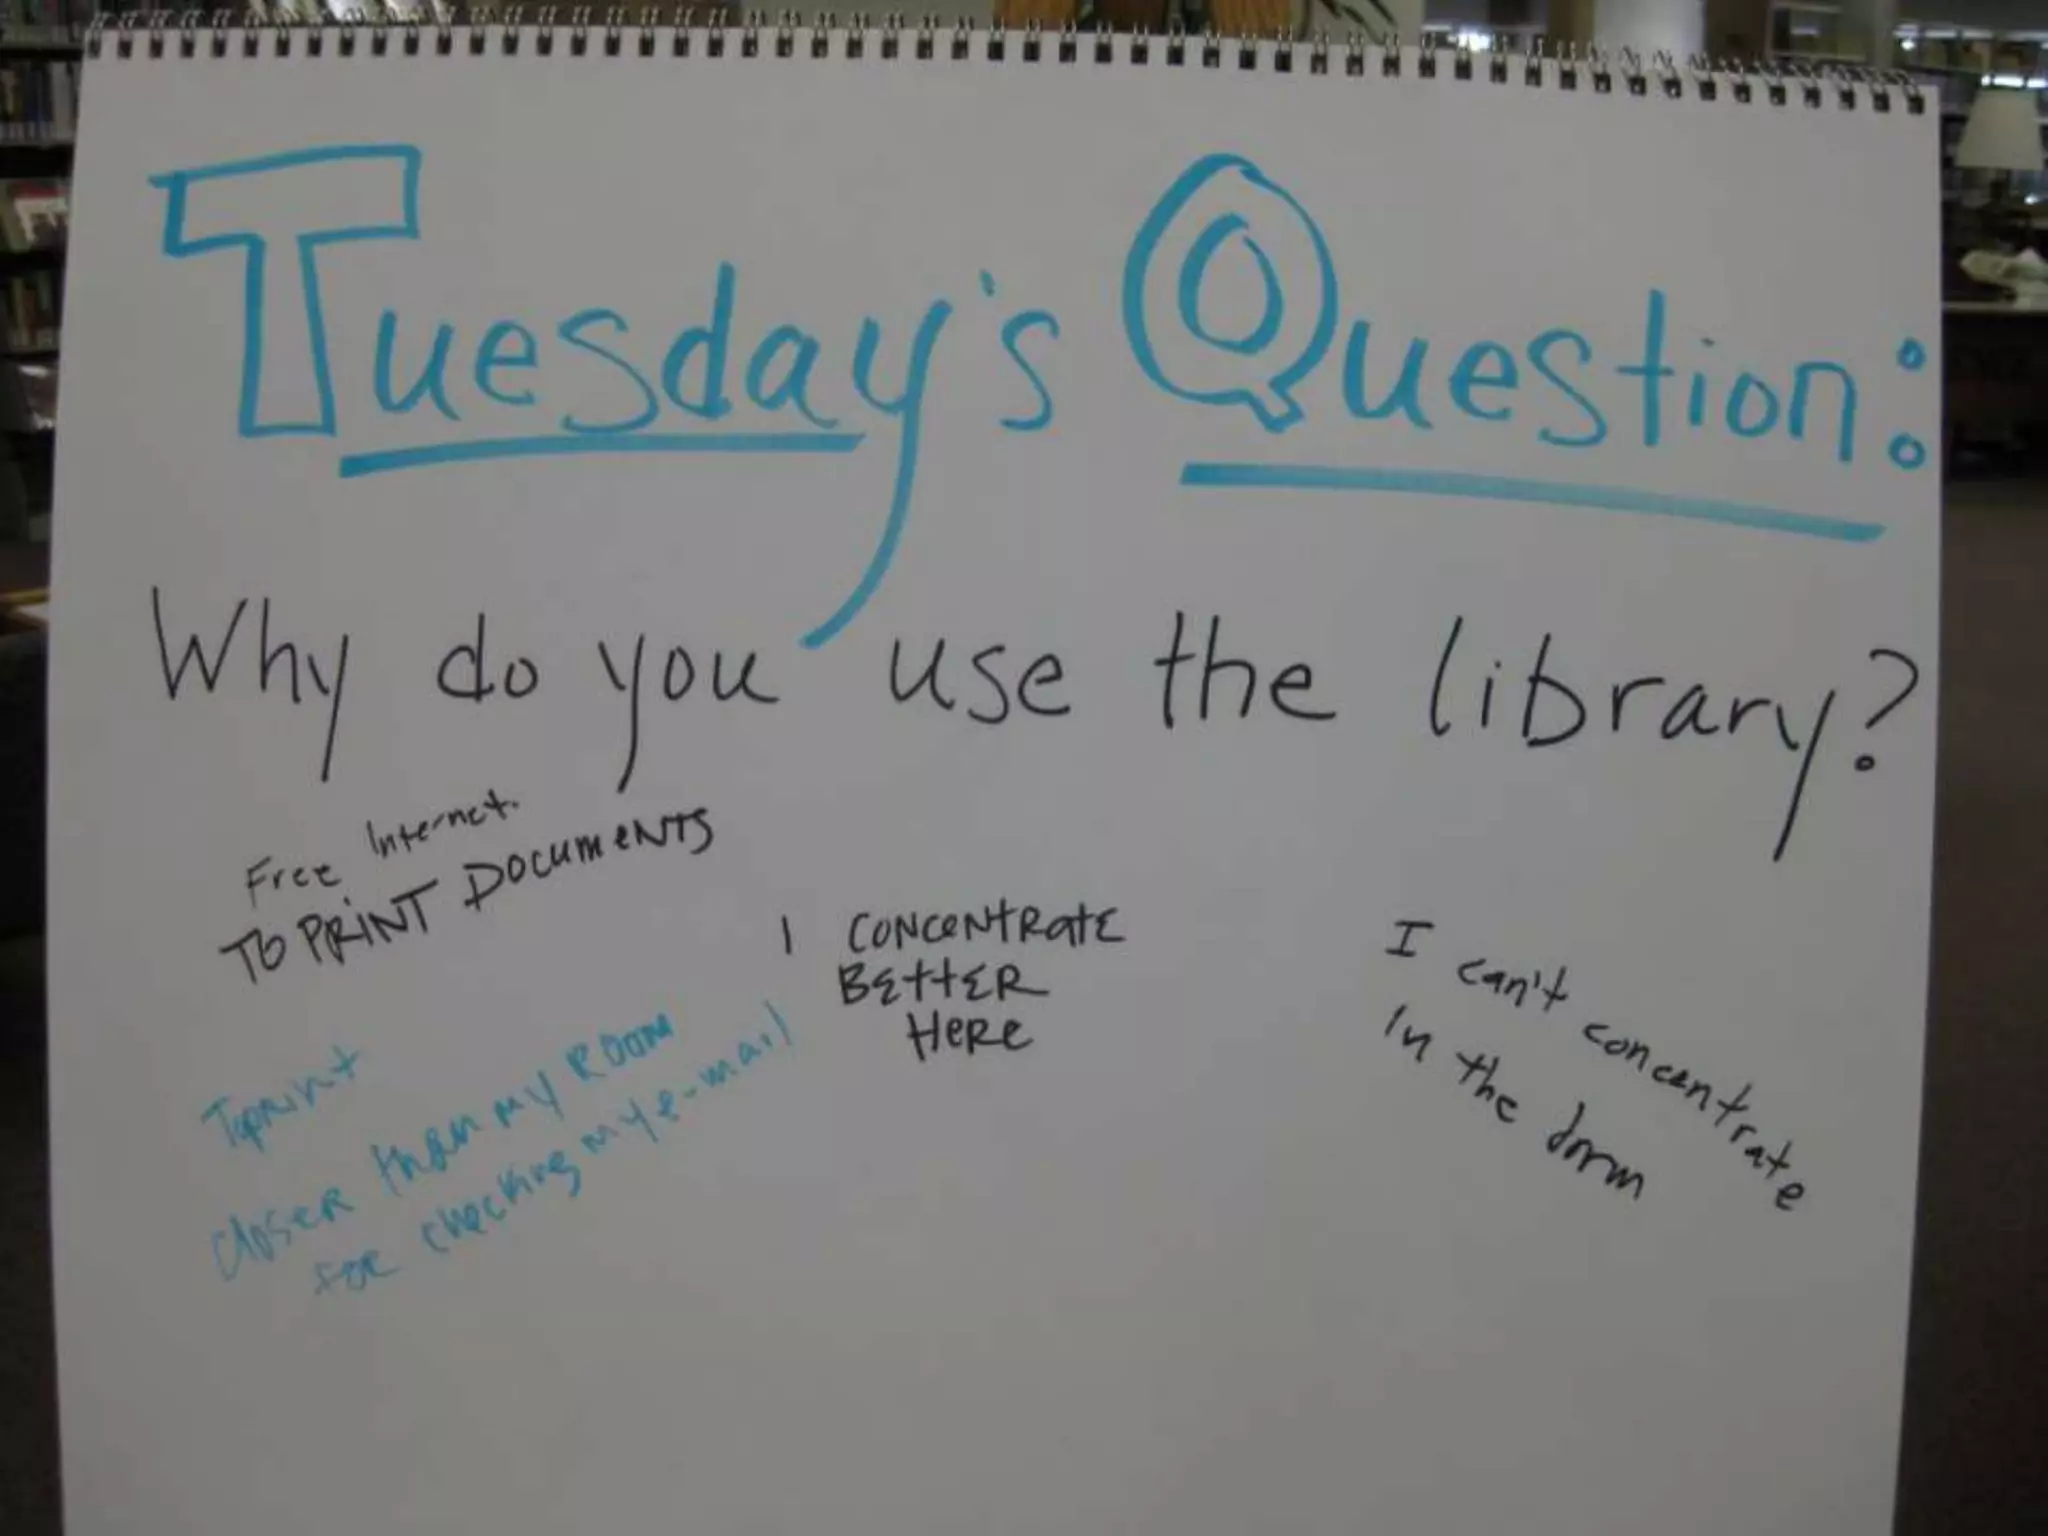 Tuesday's Question:
Why do you use the library?
Free Internet.
TO PRINT DOCUMENTS
I CONCENTRATE
BETTER
HERE
I can't concentrate
in the dorm
To print
closer than my room
for checking my e-mail